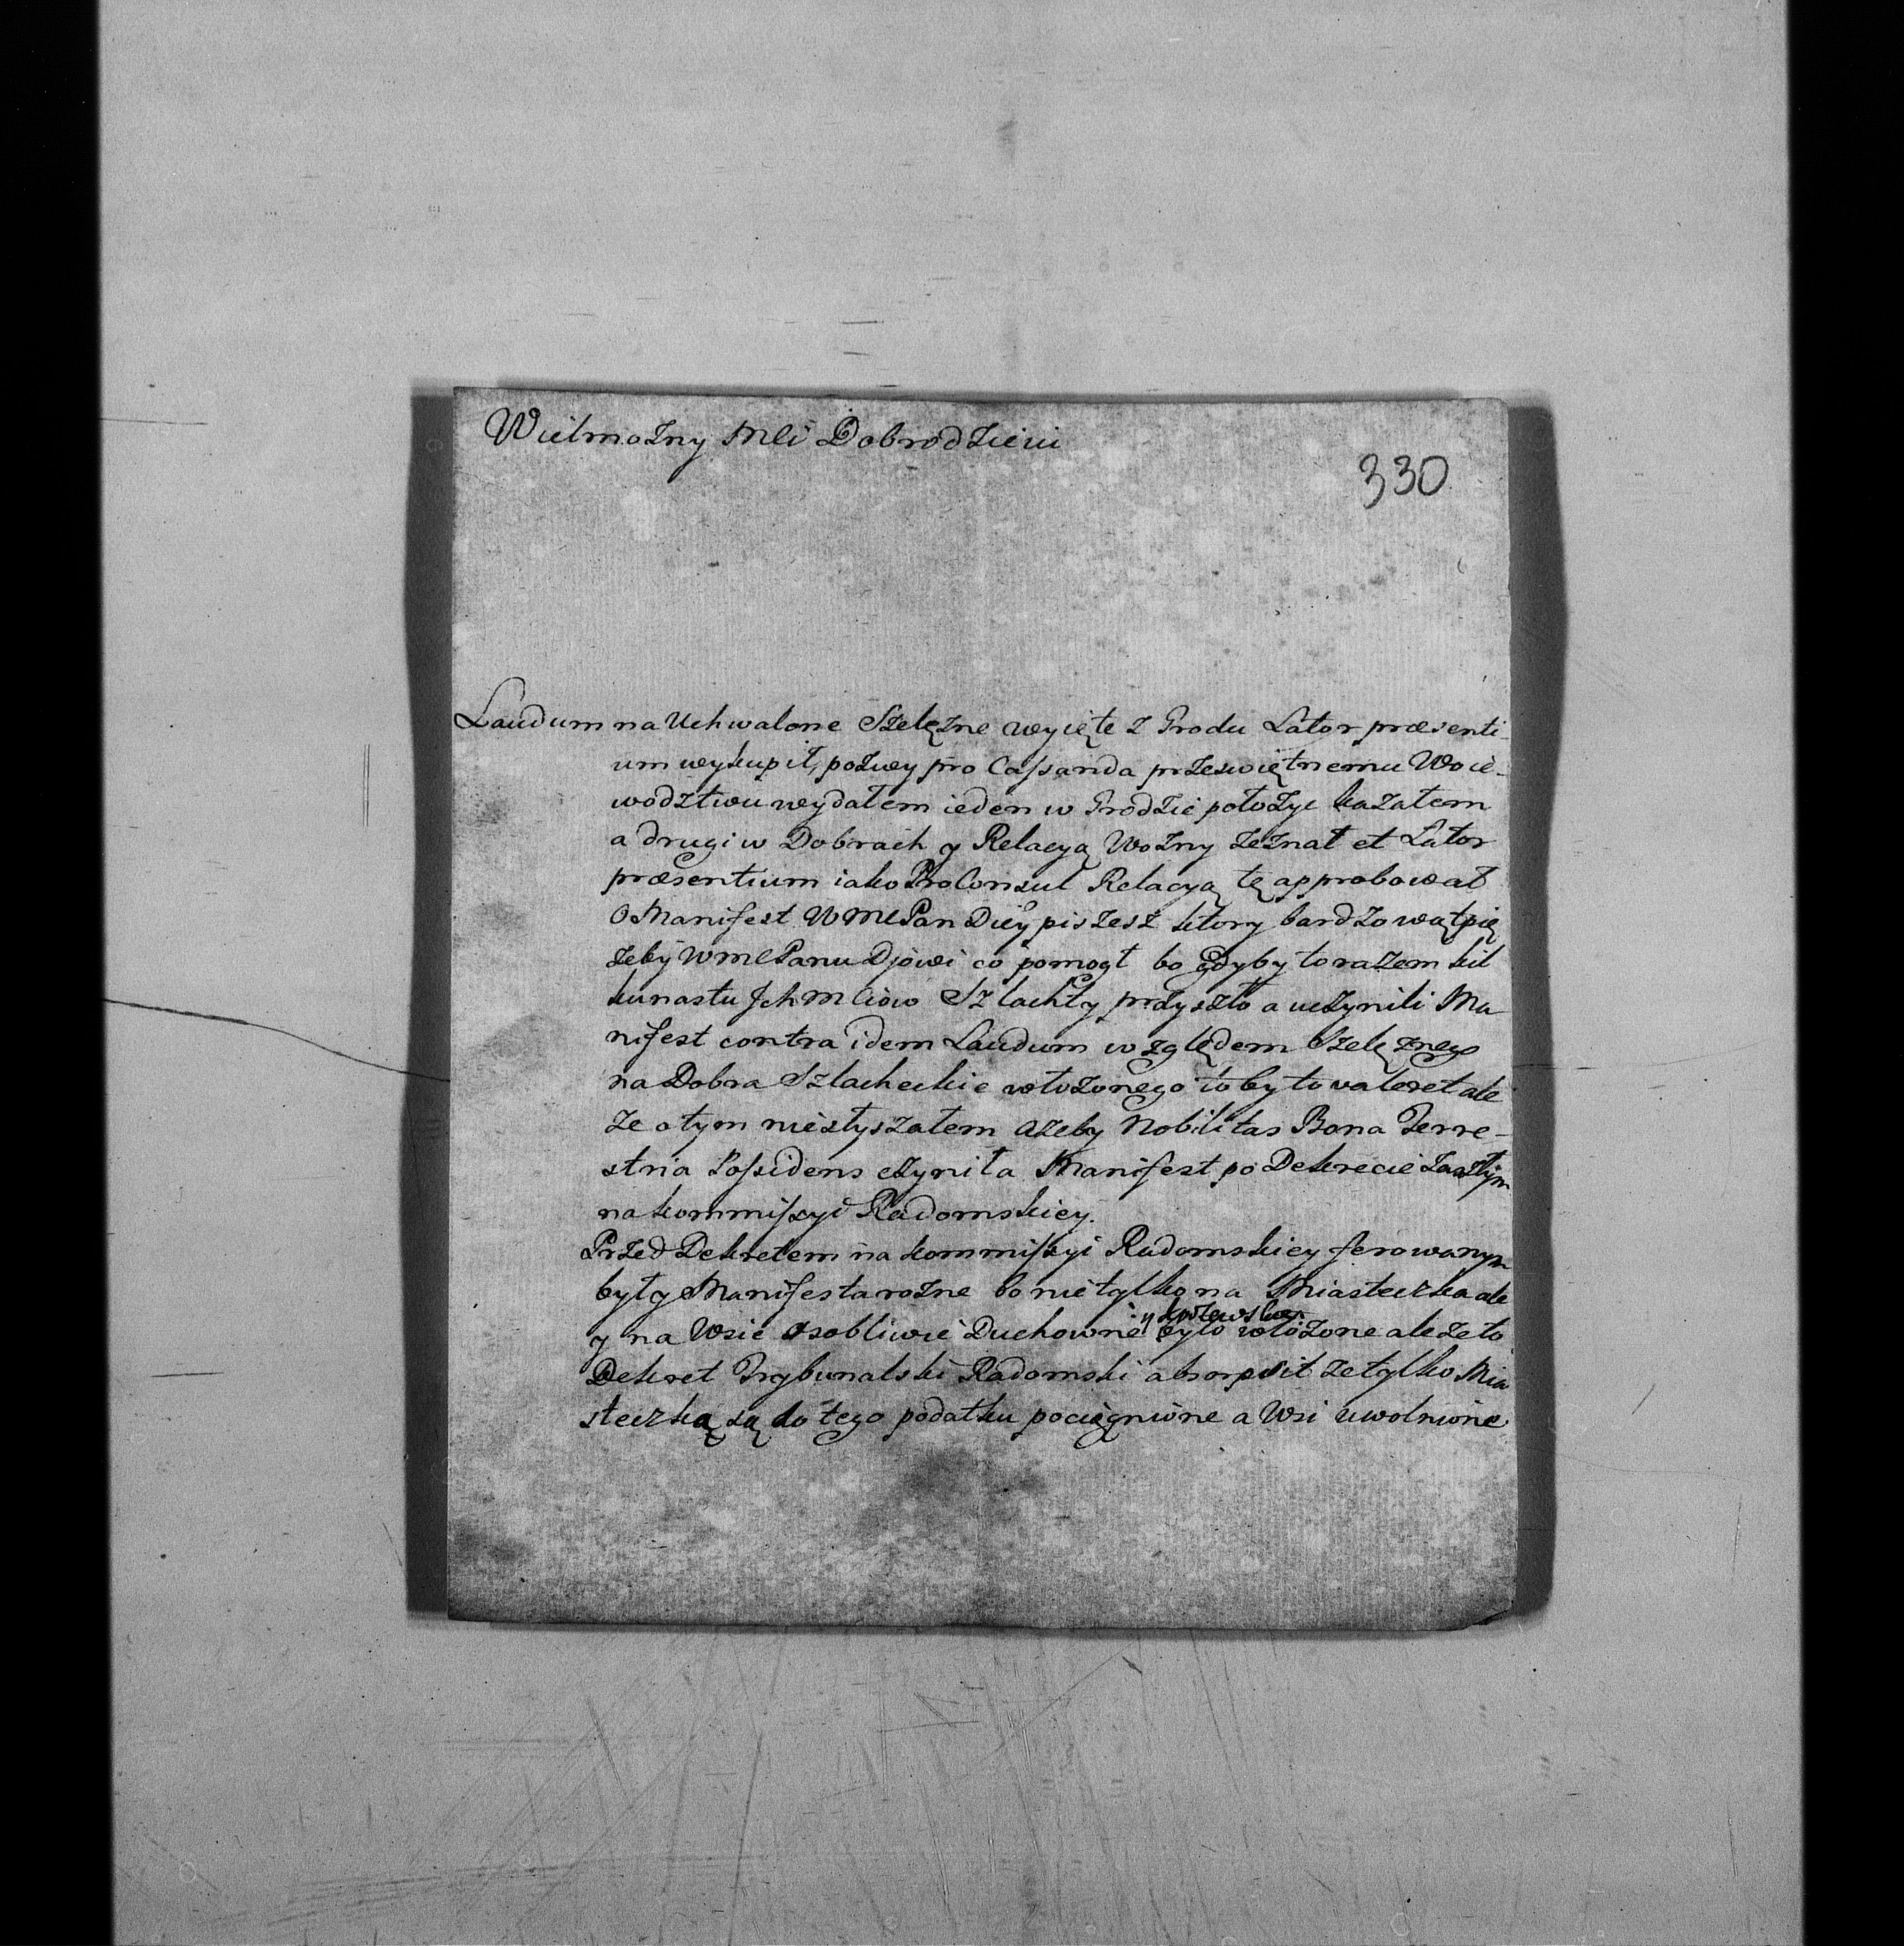 Wielmozny Mci Dobrodzieiu
330
Laudum na Uchwalone Szelęzne wyięte z Grodu Lator præsenti
um wykupił, pozwy pro Cassanda przeswiętnemu Woie-
wodztwu wydałem ieden w Grodzie połozyc kazałem
a drugi w Dobrach y Relacyą Wozny zeznał et Lator
præsentium iako ProConsul Relacyą tę approbował
O Manifest WMCPan Diey piszesz ktory bardzo wątpię
zeby WMCPanu Djowi co pomogł bo gdyby to razem kil
kunastu Ichmciow Szlachty przyszło a uczynili Ma
nifest contra idem Laudum względem Szelęznego
na Dobra Szlacheckie włozonego to by to valeret ale
ze o tym niesłyszałem azeby Nobilitas Bona Terre-
stria Possidens czyniła Manifest po Dekrecie zaszłym
na kommissyi Radomskiey.
Przed Dekretem na kommissyi Radomskiey ferowanym
były Manifesta rozne bo nie tylko na Miasteczka ale
y krolewskie
y na Wsie osobliwie Duchowne było włozone ale ze to
Dekret Trybunalski Radomski absorpsit ze tylko Mia
steczka są do tego podatku pociągnione a Wsi uwolnione